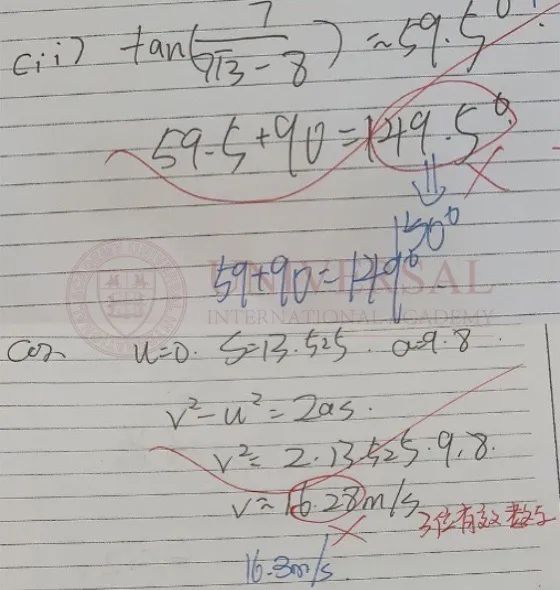 cii) tan(7/(7√3 - 8)) ≈ 59.5°
59.5+90=149.5°
150°
59+90=149°
UNIVERSAL
INTERNATIONAL ACADEMY
u=0. S=13.525. a=9.8
v²-u²=2as.
v²= 2.13.525.9.8.
v≈16.28m/s
3位有效数字
16.3m/s